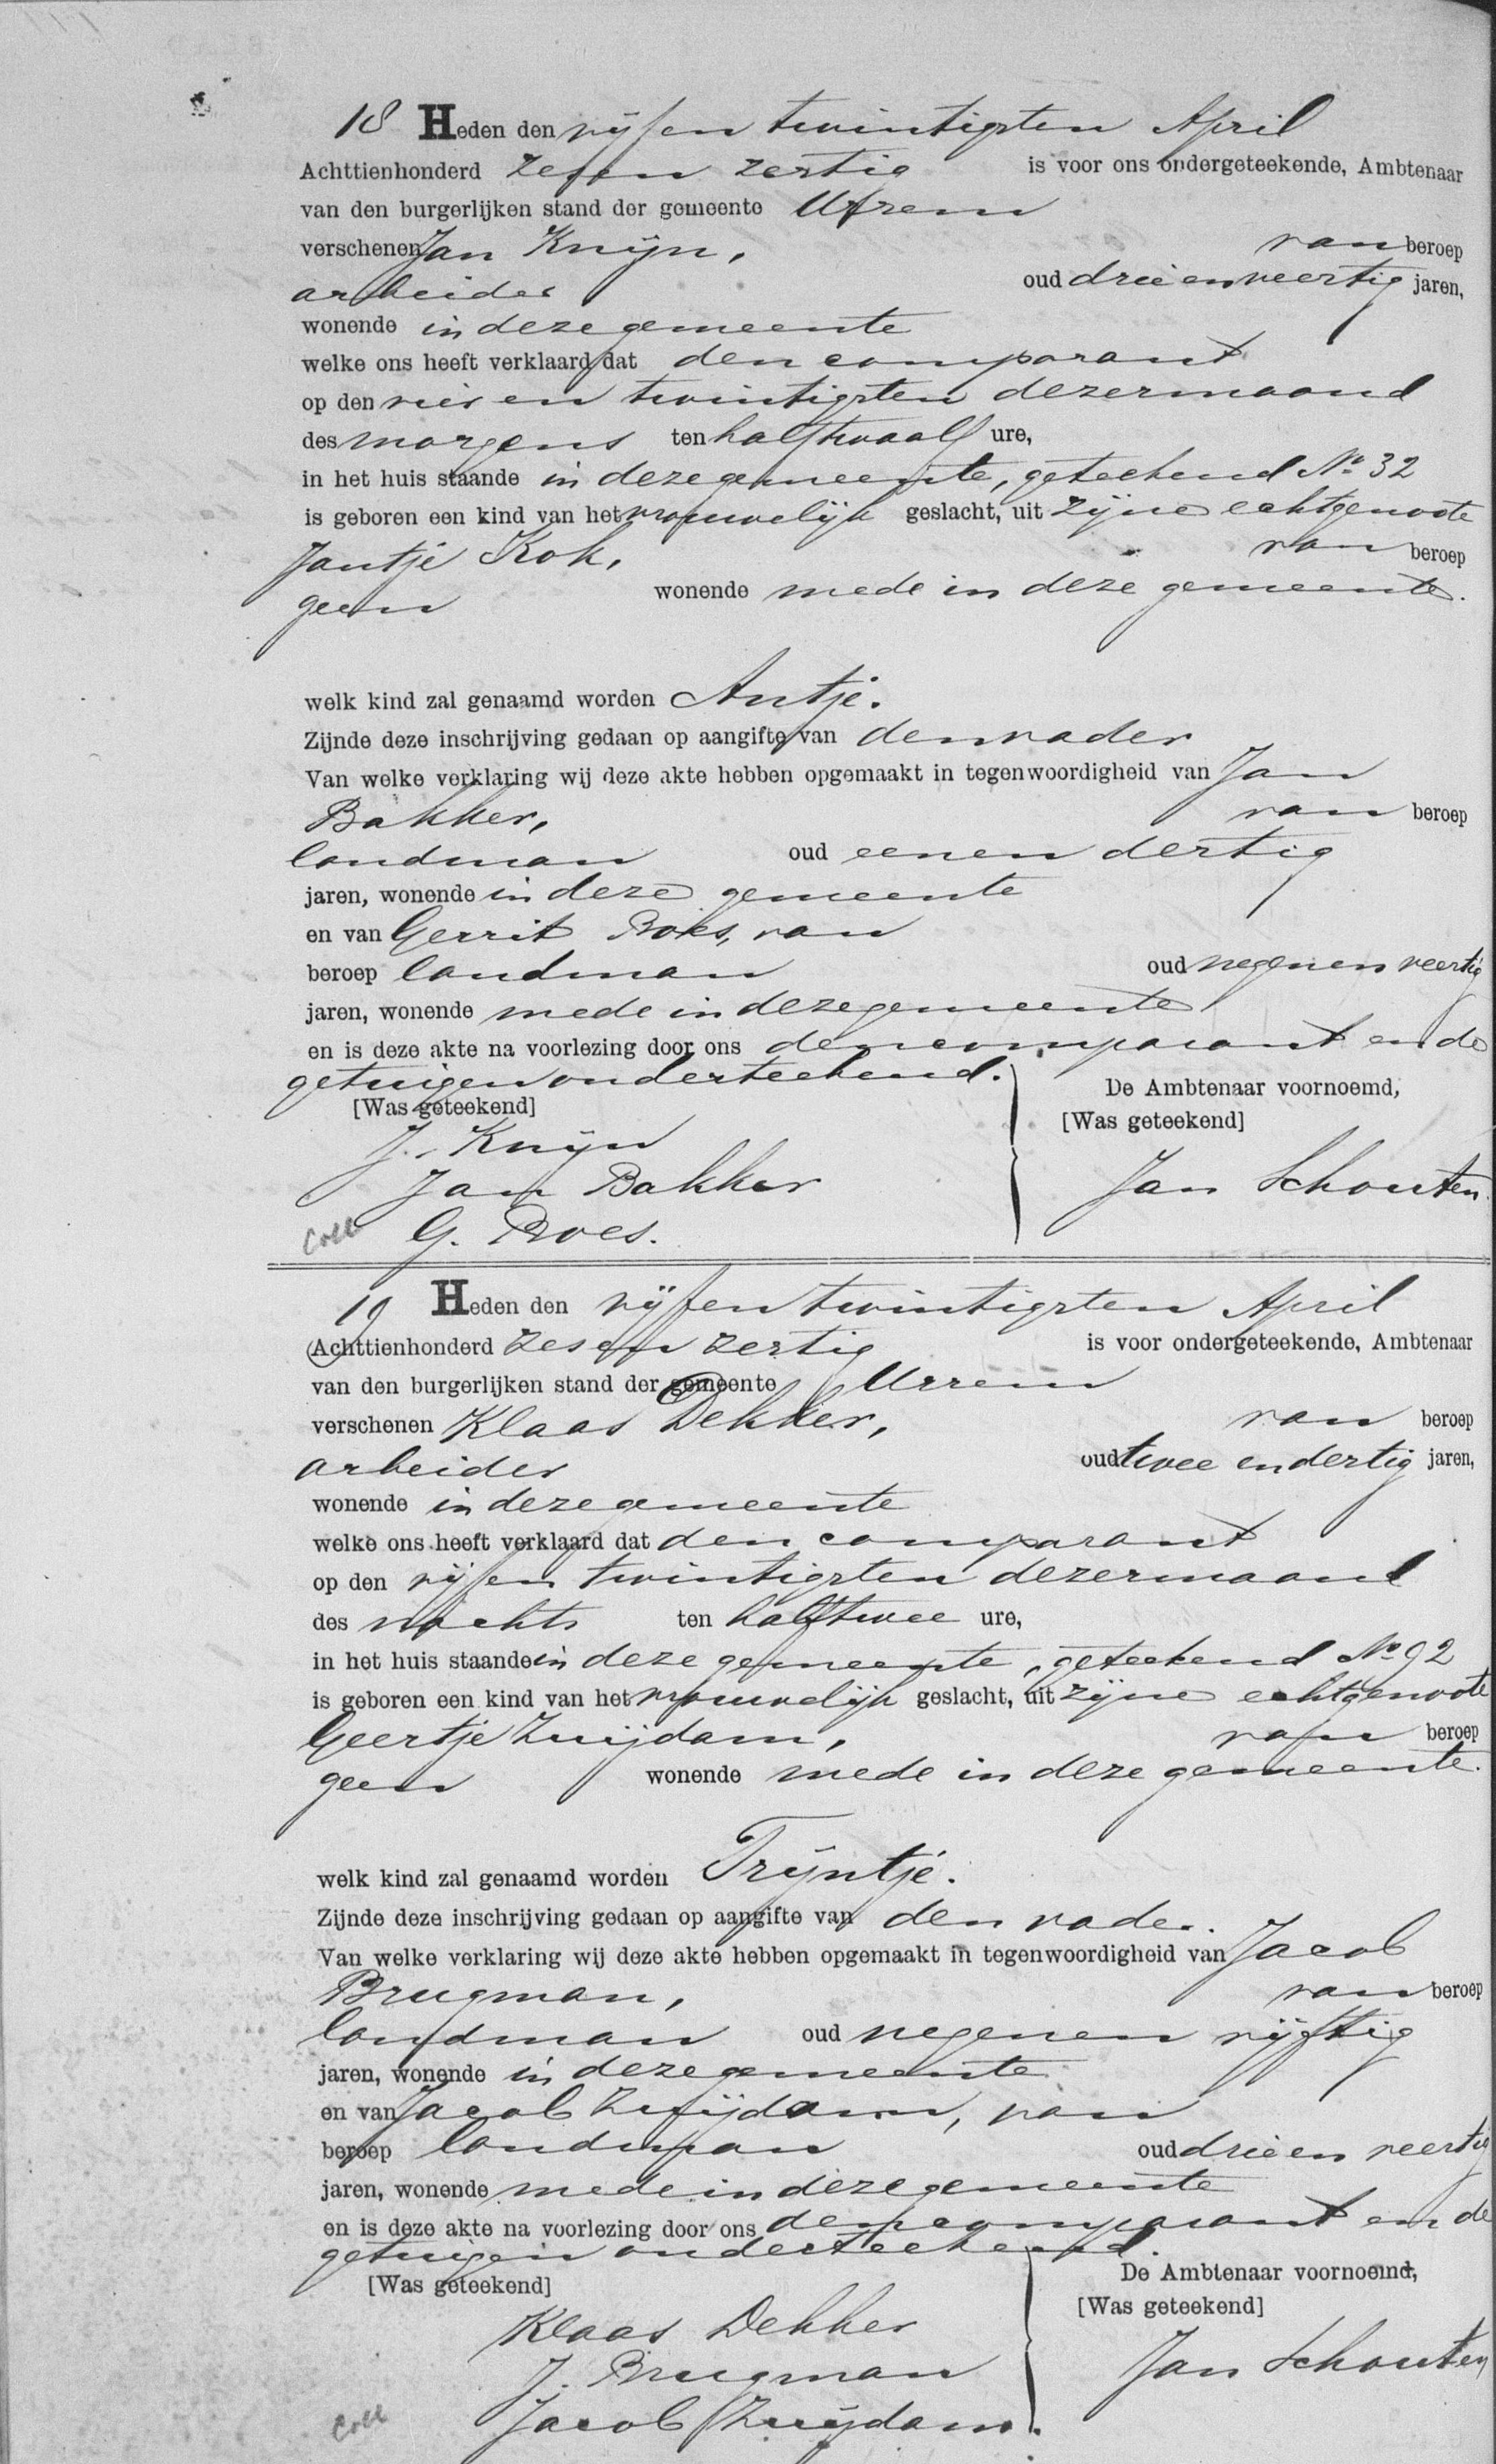 18 Heden den vijf en twintigsten April
Achttienhonderd zes en zestig is voor ons ondergeteekende, Ambtenaar
van den burgerlijken stand der gemeente Ursem
verschenen Jan Knijn, van beroep
arbeider oud drie en veertig jaren,
wonende in deze gemeente
welke ons heeft verklaard dat den comparant
op den vier en twintigsten dezer maand
des morgens ten half twaalf ure,
in het huis staande in deze gemeente, geteekend No 32
is geboren een kind van het vrouwelijk geslacht, uit zijne echtgenoote
Jantje Kok, van beroep
geen wonende mede in deze gemeente.
welk kind zal genaamd worden Antje.
Zijnde deze inschrijving gedaan op aangifte van den vader
Van welke verklaring wij deze akte hebben opgemaakt in tegenwoordigheid van Jan
Bakker, van beroep
landman oud een en dertig
jaren, wonende in deze gemeente
en van Gerrit Roes, van
beroep landman oud negen en veertig
jaren, wonende mede in deze gemeente
en is deze akte na voorlezing door ons den comparant en de
getuigen onderteekend.
De Ambtenaar voornoemd,
[Was geteekend] [Was geteekend]
J. Knijn
Jan Bakker Jan Schouten.
Coll G. Roes.
19 Heden den vijf en twintigsten April
Achttienhonderd zes en zestig is voor ondergeteekende, Ambtenaar
van den burgerlijken stand der gemeente Ursem
verschenen Klaas Dekker, van beroep
arbeider oud twee en dertig jaren,
wonende in deze gemeente
welke ons heeft verklaard dat den comparant
op den vijf en twintigsten dezer maand
des nachts ten half twee ure,
in het huis staande in deze gemeente, geteekend No 92
is geboren een kind van het vrouwelijk geslacht, uit zijne echtgenoote
Geertje Zuijdam, van beroep
geen wonende mede in deze gemeente.
welk kind zal genaamd worden Trijntje.
Zijnde deze inschrijving gedaan op aangifte van den vader.
Van welke verklaring wij deze akte hebben opgemaakt in tegenwoordigheid van Jacob
Brugman, van beroep
landman oud negen en vijftig
jaren, wonende in deze gemeente
en van Jacob Zuijdam, van
beroep landman oud drie en veertig
jaren, wonende mede in deze gemeente
en is deze akte na voorlezing door ons den comparant en de
getuigen onderteekend.
De Ambtenaar voornoemd,
[Was geteekend] [Was geteekend]
Klaas Dekker
J. Brugman Jan Schouten
Coll Jacob Zuijdam.